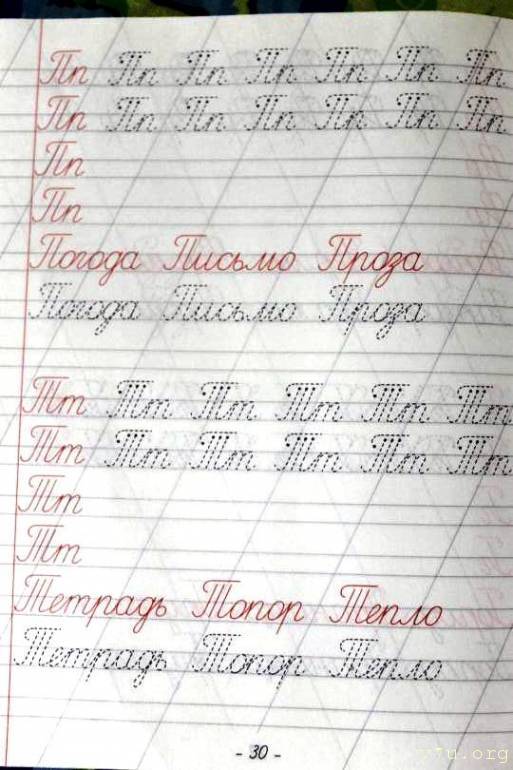 Пп Пп Пп Пп Пп Пп Пп
Пп Пп Пп Пп Пп Пп Пп
Пп
Пп
Погода Письмо Проза
Погода Письмо Проза
Тт Тт Тт Тт Тт Тт
Тт Тт Тт Тт Тт Тт
Тт
Тт
Тетрадь Топор Тепло
Тетрадь Топор Тепло
- 30 -